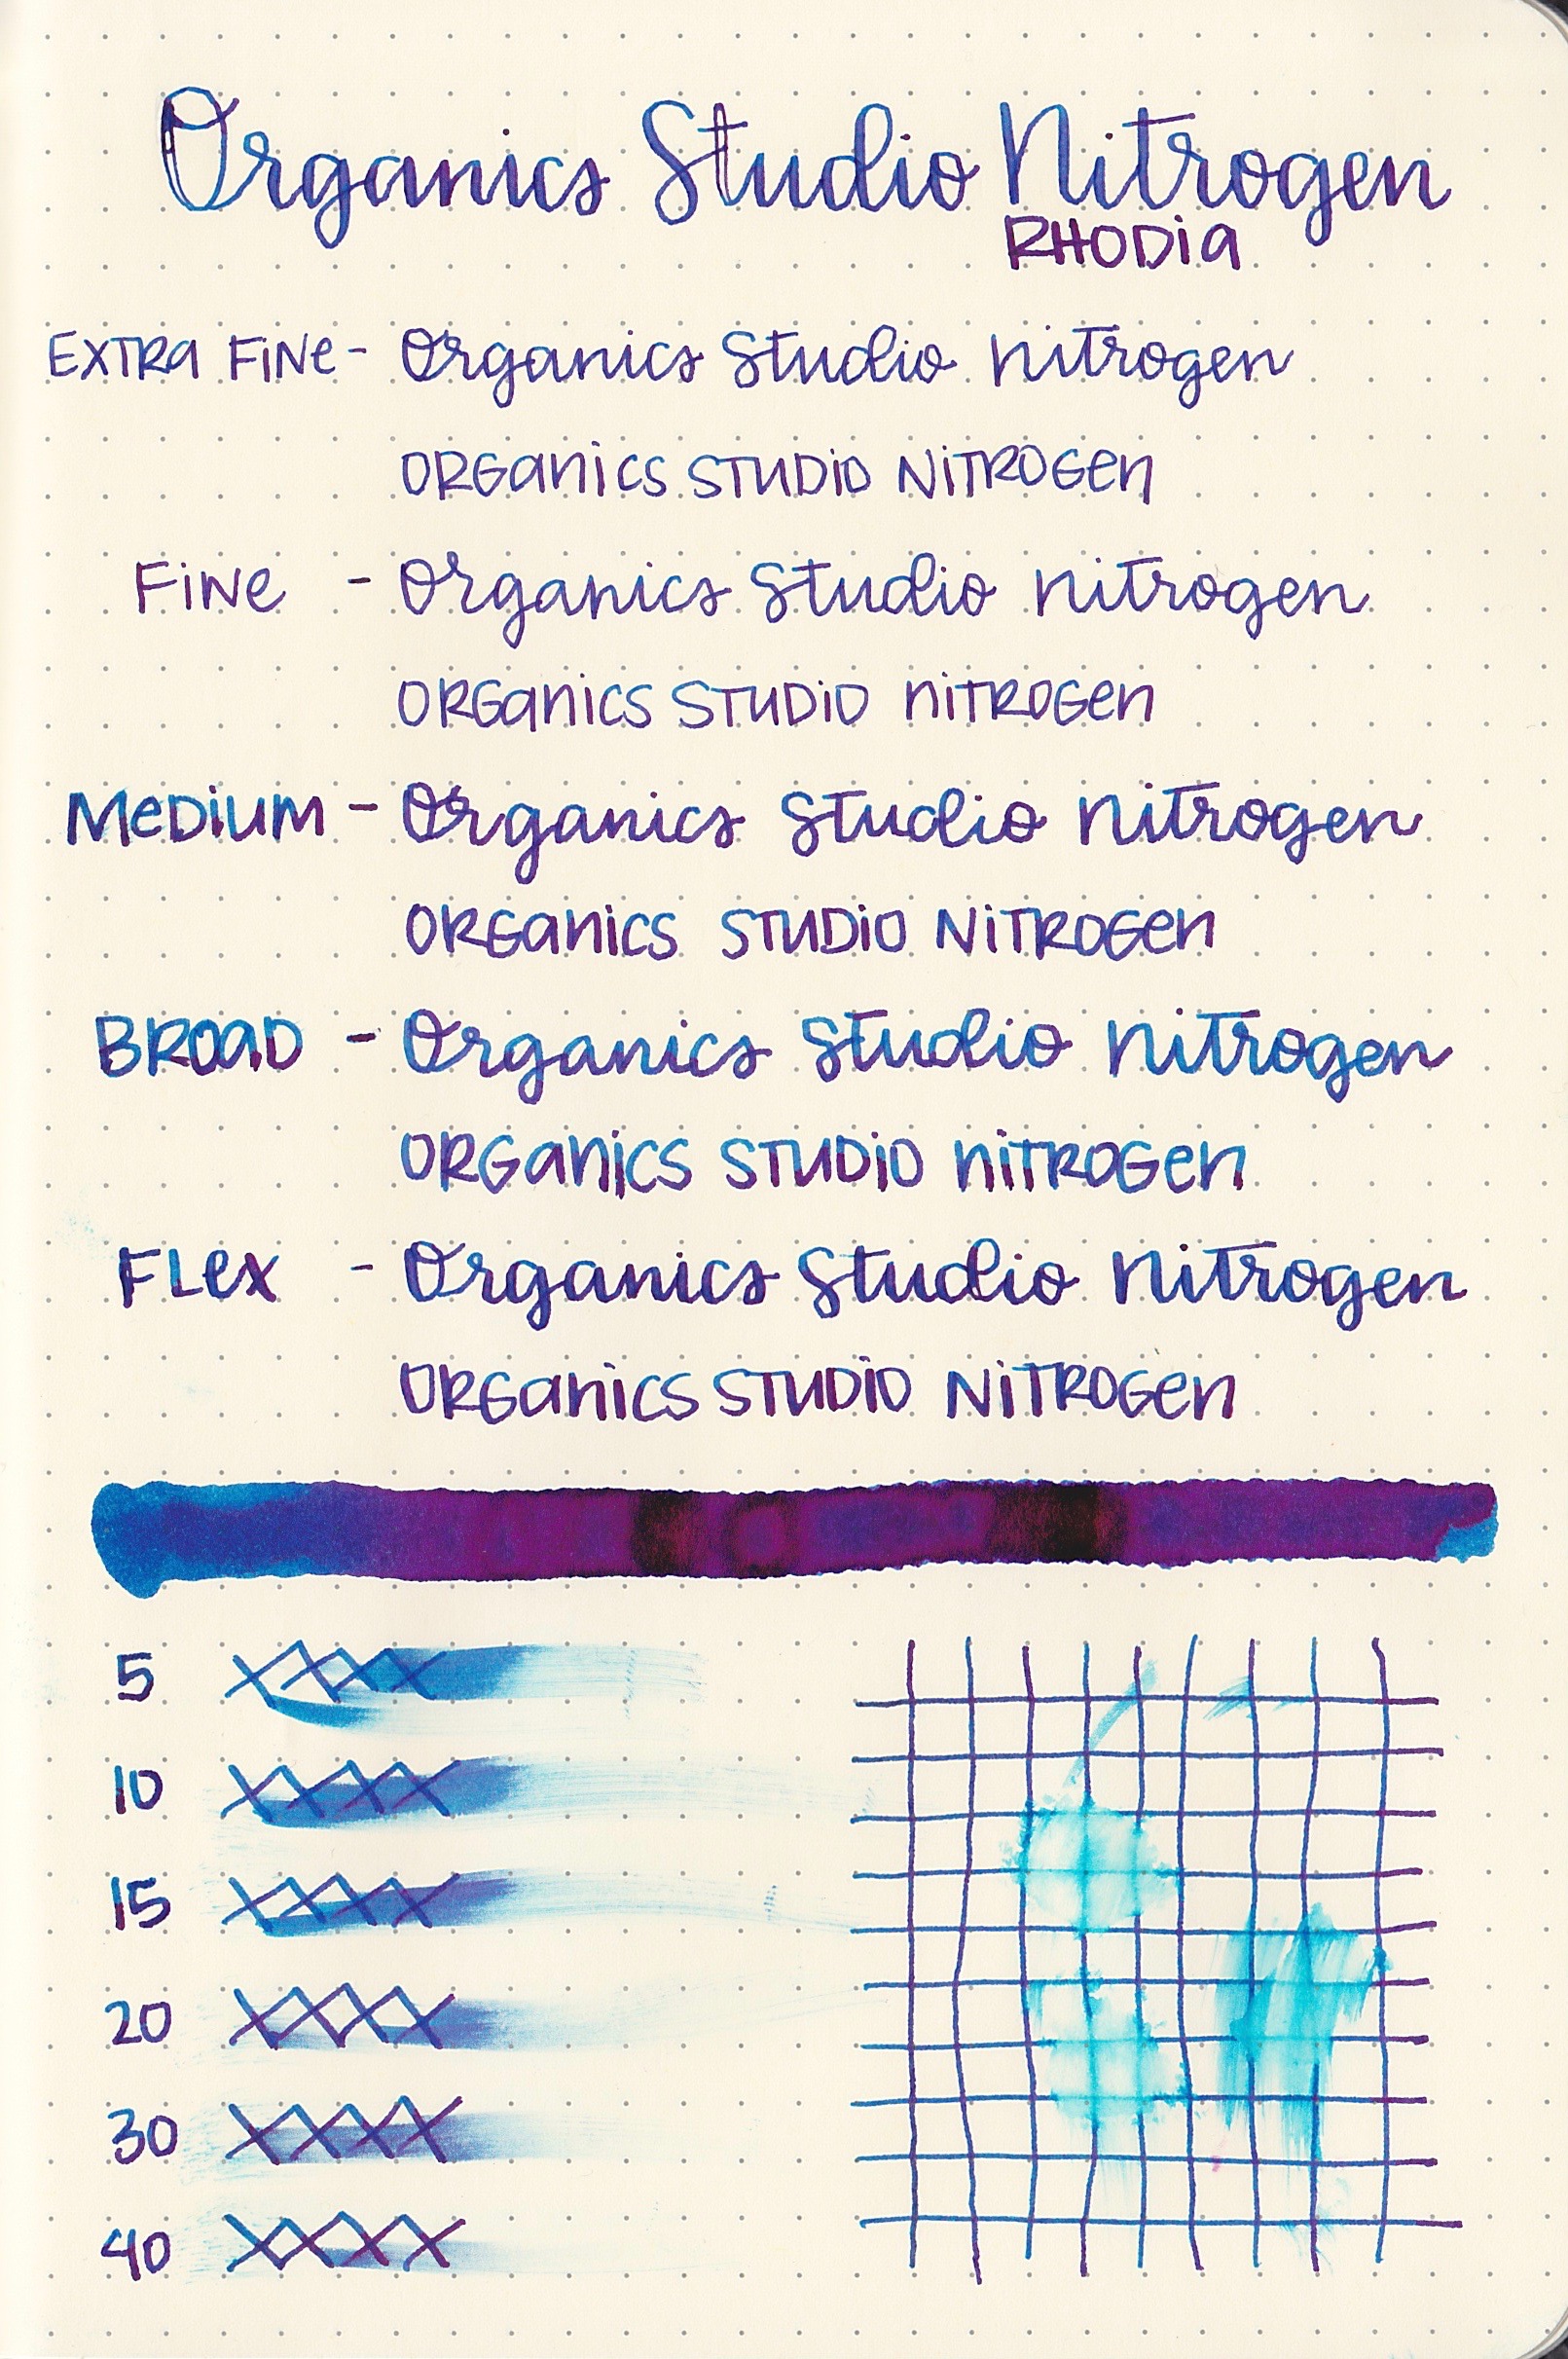 Organics Studio Nitrogen
RHODIA
EXTRA FINE - Organics Studio Nitrogen
ORGANICS STUDIO NITROGEN
FINE - Organics Studio Nitrogen
ORGANICS STUDIO NITROGEN
MEDIUM - Organics Studio Nitrogen
ORGANICS STUDIO NITROGEN
BROAD - Organics Studio Nitrogen
ORGANICS STUDIO NITROGEN
FLEX - Organics Studio Nitrogen
ORGANICS STUDIO NITROGEN
5
10
15
20
30
40